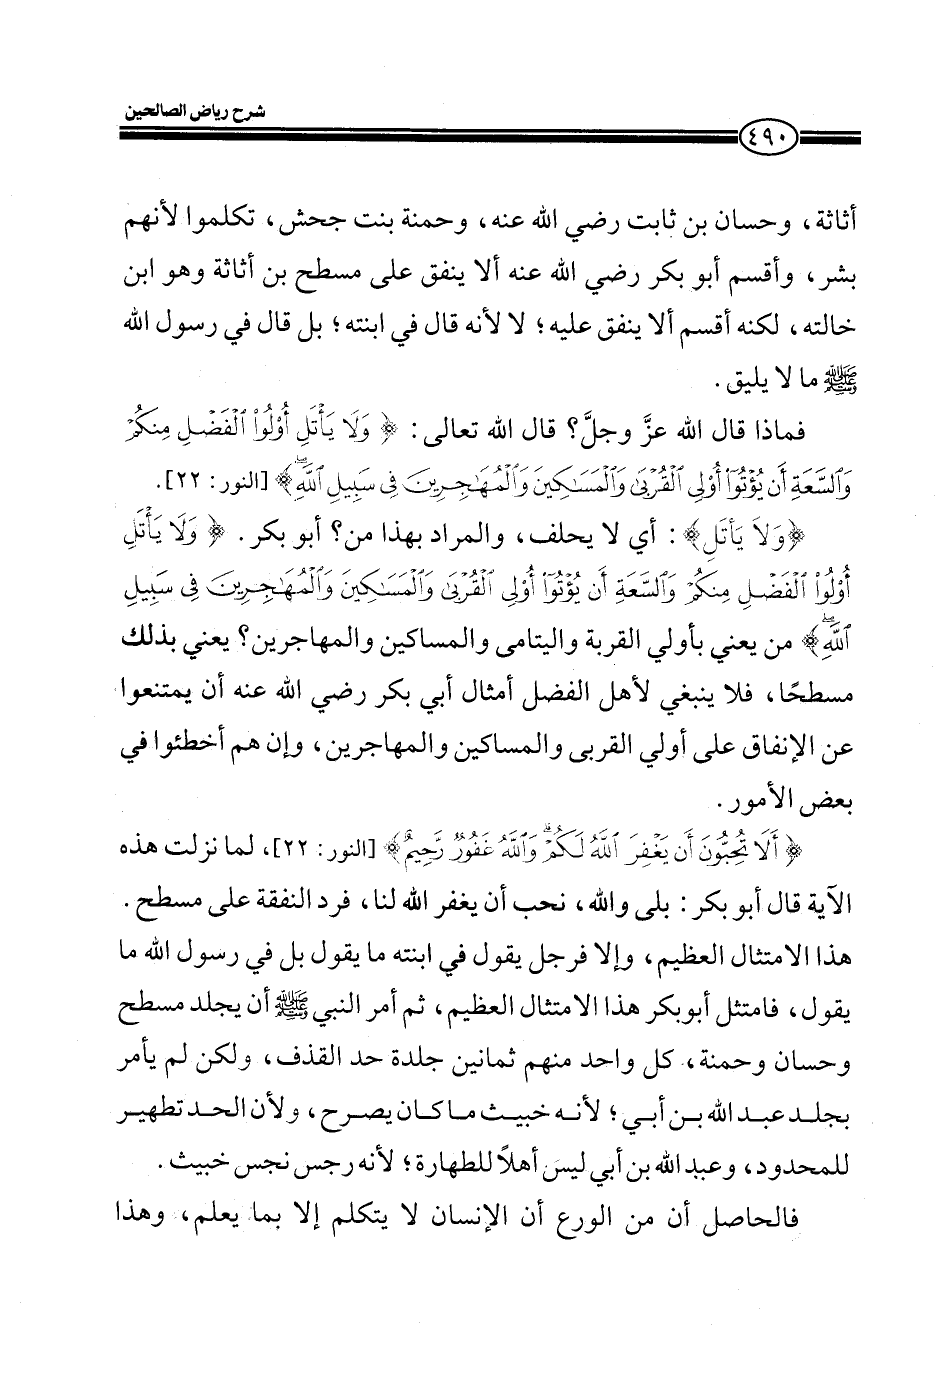 شرح رياض الصالحين
٤٩٠
أثاثة، وحسان بن ثابت رضي الله عنه، وحمنة بنت جحش، تكلموا لأنهم
بشر، وأقسم أبو بكر رضي الله عنه ألا ينفق على مسطح بن أثاثة وهو ابن
خالته، لكنه أقسم ألا ينفق عليه؛ لا لأنه قال في ابنته؛ بل قال في رسول الله
ﷺ ما لا يليق.
فماذا قال الله عزَّ وجلَّ؟ قال الله تعالى: ﴿ وَلَا يَأْتَلِ أُوْلُواْ ٱلْفَضْلِ مِنكُمْ
وَٱلسَّعَةِ أَن يُؤْتُوٓاْ أُوْلِي ٱلْقُرْبَىٰ وَٱلْمَسَٰكِينَ وَٱلْمُهَٰجِرِينَ فِي سَبِيلِ ٱللَّهِۖ ﴾ [النور: ٢٢].
﴿وَلَا يَأْتَلِ﴾: أي لا يحلف، والمراد بهذا من؟ أبو بكر. ﴿ وَلَا يَأْتَلِ
أُوْلُواْ ٱلْفَضْلِ مِنكُمْ وَٱلسَّعَةِ أَن يُؤْتُوٓاْ أُوْلِي ٱلْقُرْبَىٰ وَٱلْمَسَٰكِينَ وَٱلْمُهَٰجِرِينَ فِي سَبِيلِ
ٱللَّهِۖ ﴾ من يعني بأولي القربة واليتامى والمساكين والمهاجرين؟ يعني بذلك
مسطحًا، فلا ينبغي لأهل الفضل أمثال أبي بكر رضي الله عنه أن يمتنعوا
عن الإنفاق على أولي القربى والمساكين والمهاجرين، وإن هم أخطئوا في
بعض الأمور.
﴿ أَلَا تُحِبُّونَ أَن يَغْفِرَ ٱللَّهُ لَكُمْۗ وَٱللَّهُ غَفُورٌ رَّحِيمٌ ﴾ [النور: ٢٢]، لما نزلت هذه
الآية قال أبو بكر: بلى والله، نحب أن يغفر الله لنا، فرد النفقة على مسطح.
هذا الامتثال العظيم، وإلا فرجل يقول في ابنته ما يقول بل في رسول الله ما
يقول، فامتثل أبوبكر هذا الامتثال العظيم، ثم أمر النبي ﷺ أن يجلد مسطح
وحسان وحمنة، كل واحد منهم ثمانين جلدة حد القذف، ولكن لم يأمر
بجلد عبد الله بن أبي؛ لأنه خبيث ما كان يصرح، ولأن الحد تطهير
للمحدود، وعبد الله بن أبي ليس أهلاً للطهارة؛ لأنه رجس نجس خبيث.
فالحاصل أن من الورع أن الإنسان لا يتكلم إلا بما يعلم، وهذا